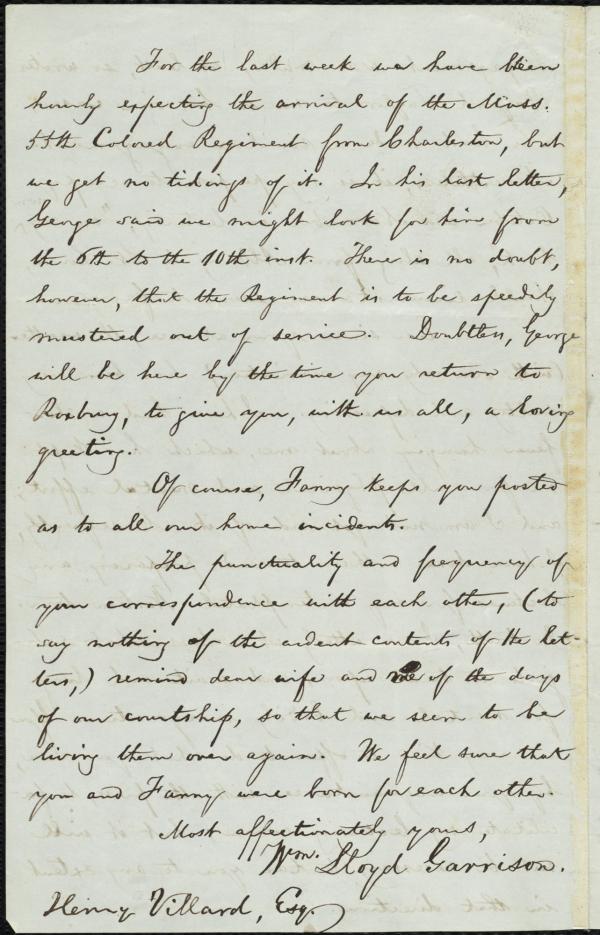 For the last week we have been
hourly expecting the arrival of the Mass.
55th Colored Regiment from Charleston, but
we get no tidings of it. In his last letter,
George said we might look for him from
the 6th to the 10th inst. There is no doubt,
however, that the Regiment is to be speedily
mustered out of service. Doubtless, George
will be here by the time you return to
Roxbury, to give you, with us all, a loving
greeting.
Of course, Fanny keeps you posted
as to all our home incidents.
The punctuality and frequency of
your correspondence with each other, (to
say nothing of the ardent contents of the let-
ters,) remind dear wife and me of the days
of our courtship, so that we seem to be
living them over again. We feel sure that
you and Fanny were born for each other.
Most affectionately yours,
Wm. Lloyd Garrison.
Henry Villard, Esq.